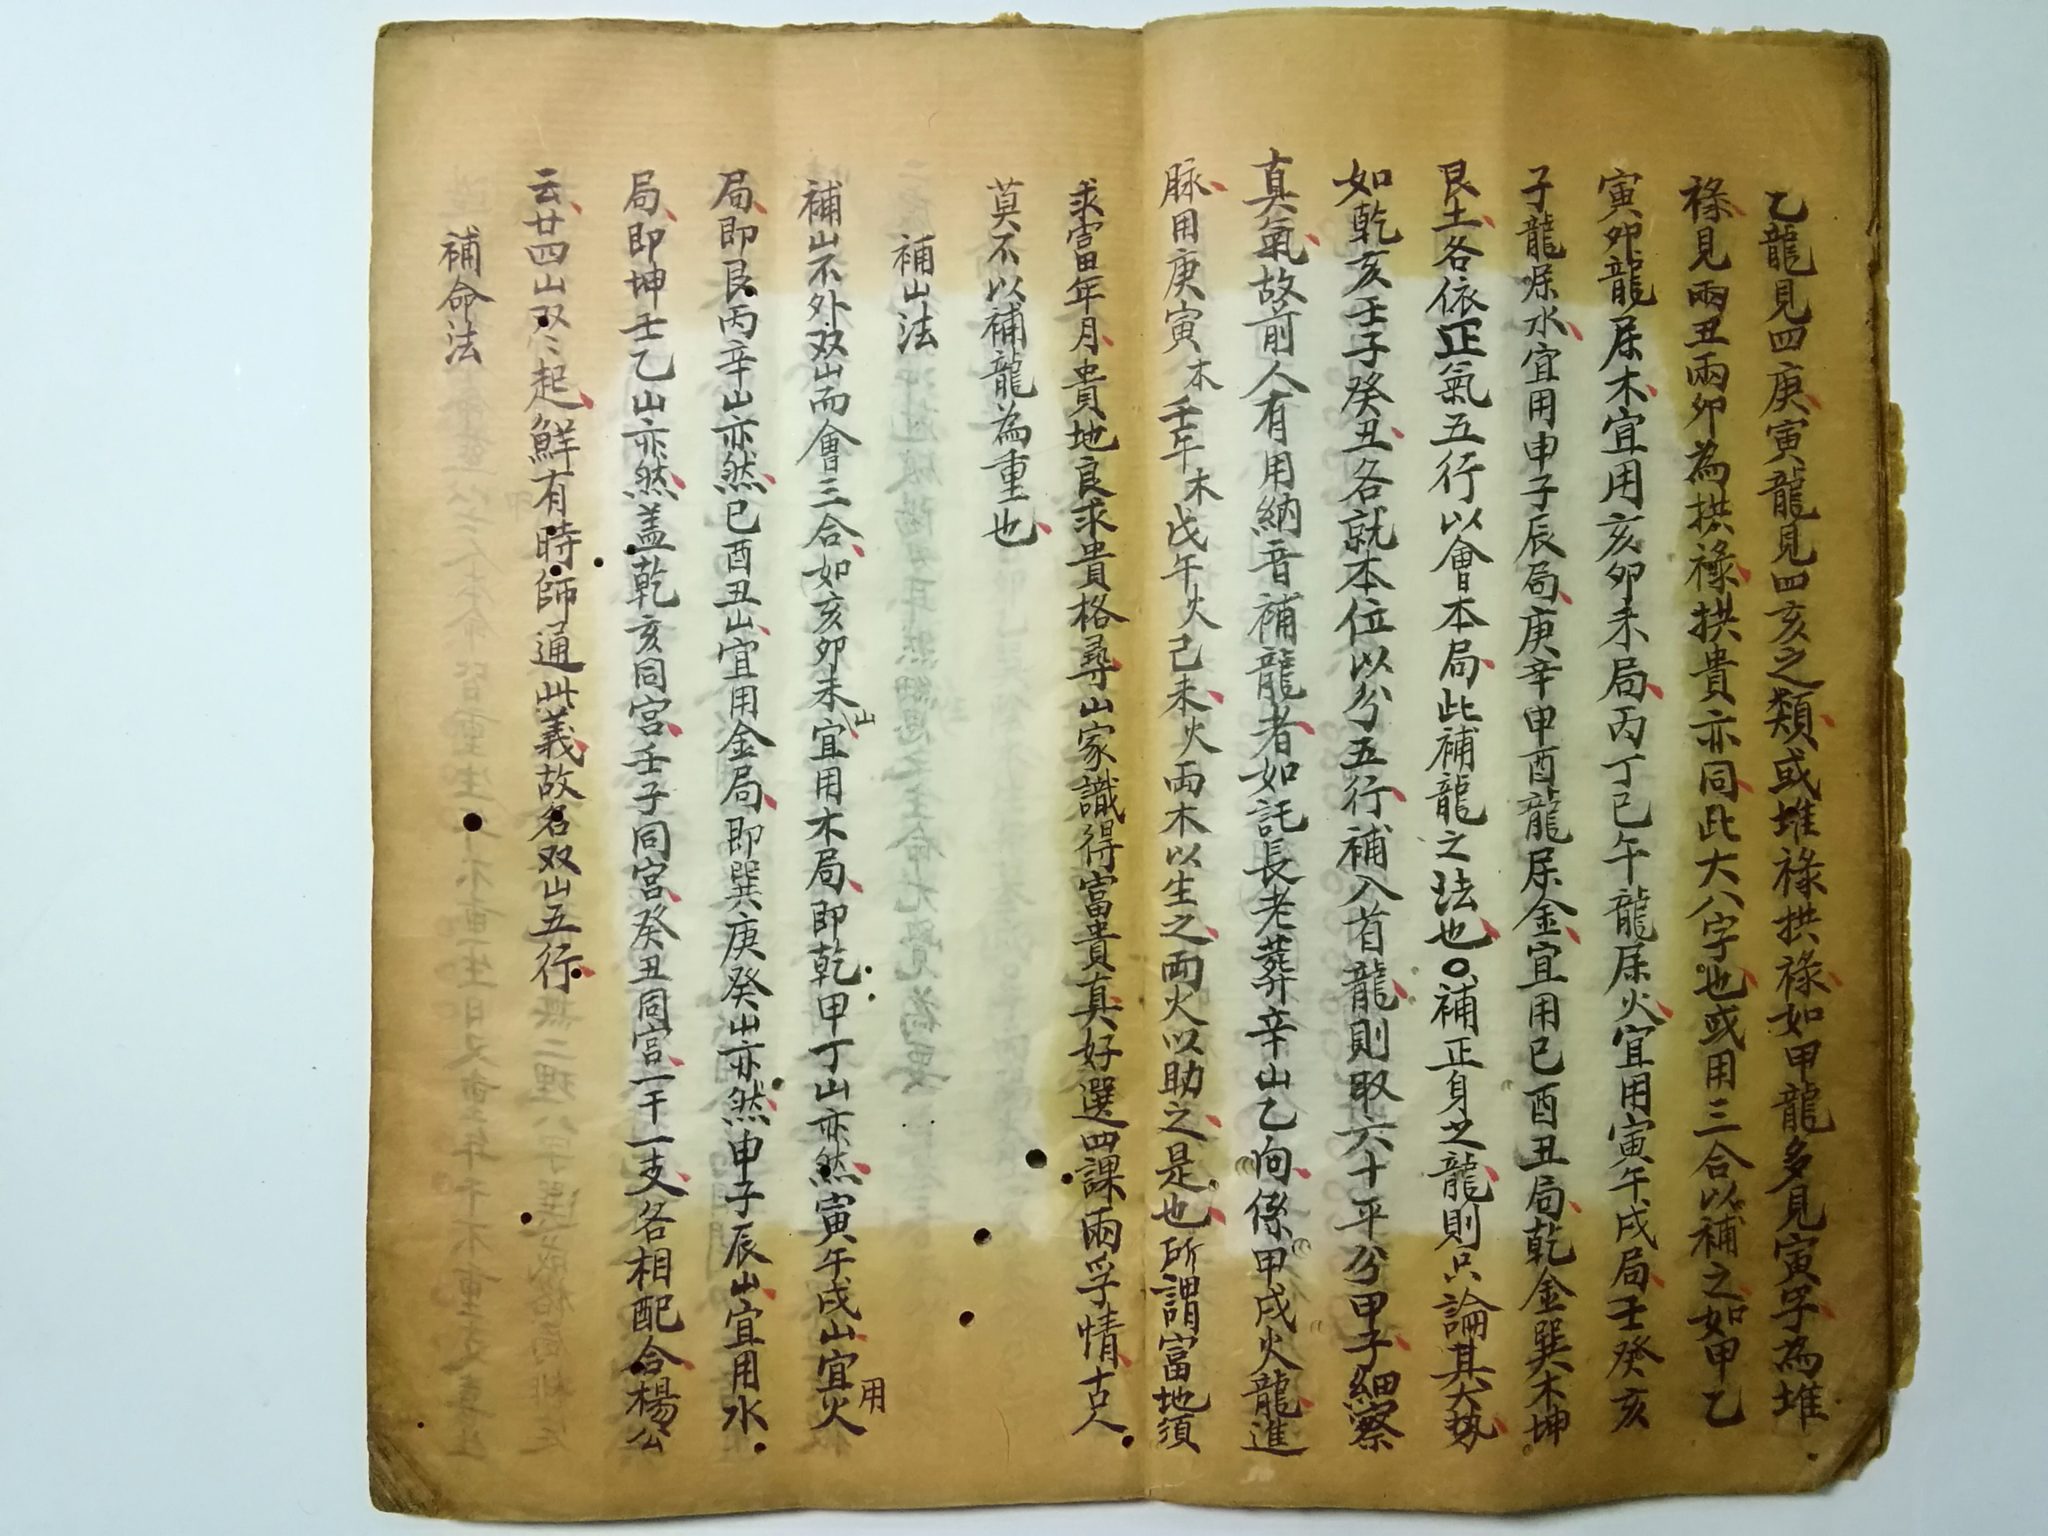 乙龍見四庚寅龍見四亥之類或堆祿拱祿如甲龍多見寅字為堆
祿見兩丑兩卯為拱祿拱貴亦同此大八字也或用三合以補之如甲乙
寅卯龍屬木宜用亥卯未局丙丁巳午龍屬火宜用寅午戌局壬癸亥
子龍屬水宜用申子辰局庚辛申酉龍屬金宜用巳酉丑局乾金巽木坤
艮土各依正氣五行以會本局此補龍之法也○補正身之龍則只論其大勢
如乾亥壬子癸丑各就本位以分五行補入首龍則取六十平分甲子細察
真氣故前人有用納音補龍者如託長老葬辛山乙向係甲戌火龍進
脉用庚寅木壬午木戊午火己未火兩木以生之兩火以助之是也所謂富地須
求富年月貴地良求貴格尋山家識得富貴真好選四課兩孚情古人
莫不以補龍為重也
補山法
補山不外双山而會三合如亥卯未山宜用木局即乾甲丁山亦然寅午戌山宜用火
局即艮丙辛山亦然巳酉丑山宜用金局即巽庚癸山亦然申子辰山宜用水
局即坤壬乙山亦然盖乾亥同宮壬子同宮癸丑同宮一干一支各相配合楊公
云廿四山双〻起鮮有時師通此義故名双山五行
補命法